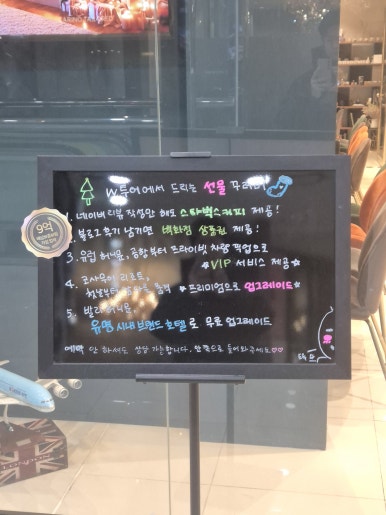 W투어에서 드리는 선물 꾸러미
1. 네이버 리뷰 작성만 해도 스타벅스커피 제공!
2. 블로그 후기 남기면 백화점 상품권 제공!
3. 유럽 허니문, 공항부터 프라이빗 차량 픽업으로
☆VIP 서비스 제공☆
4. 코사무이 리조트,
첫날부터 ☆프리미엄으로 업그레이드☆
5. 발리 허니문,
유명 시내 브랜드 호텔로 무료 업그레이드
예약 안 하셔도 상담 가능합니다. 안쪽으로 들어와주세요♡♡
9억
LONDON